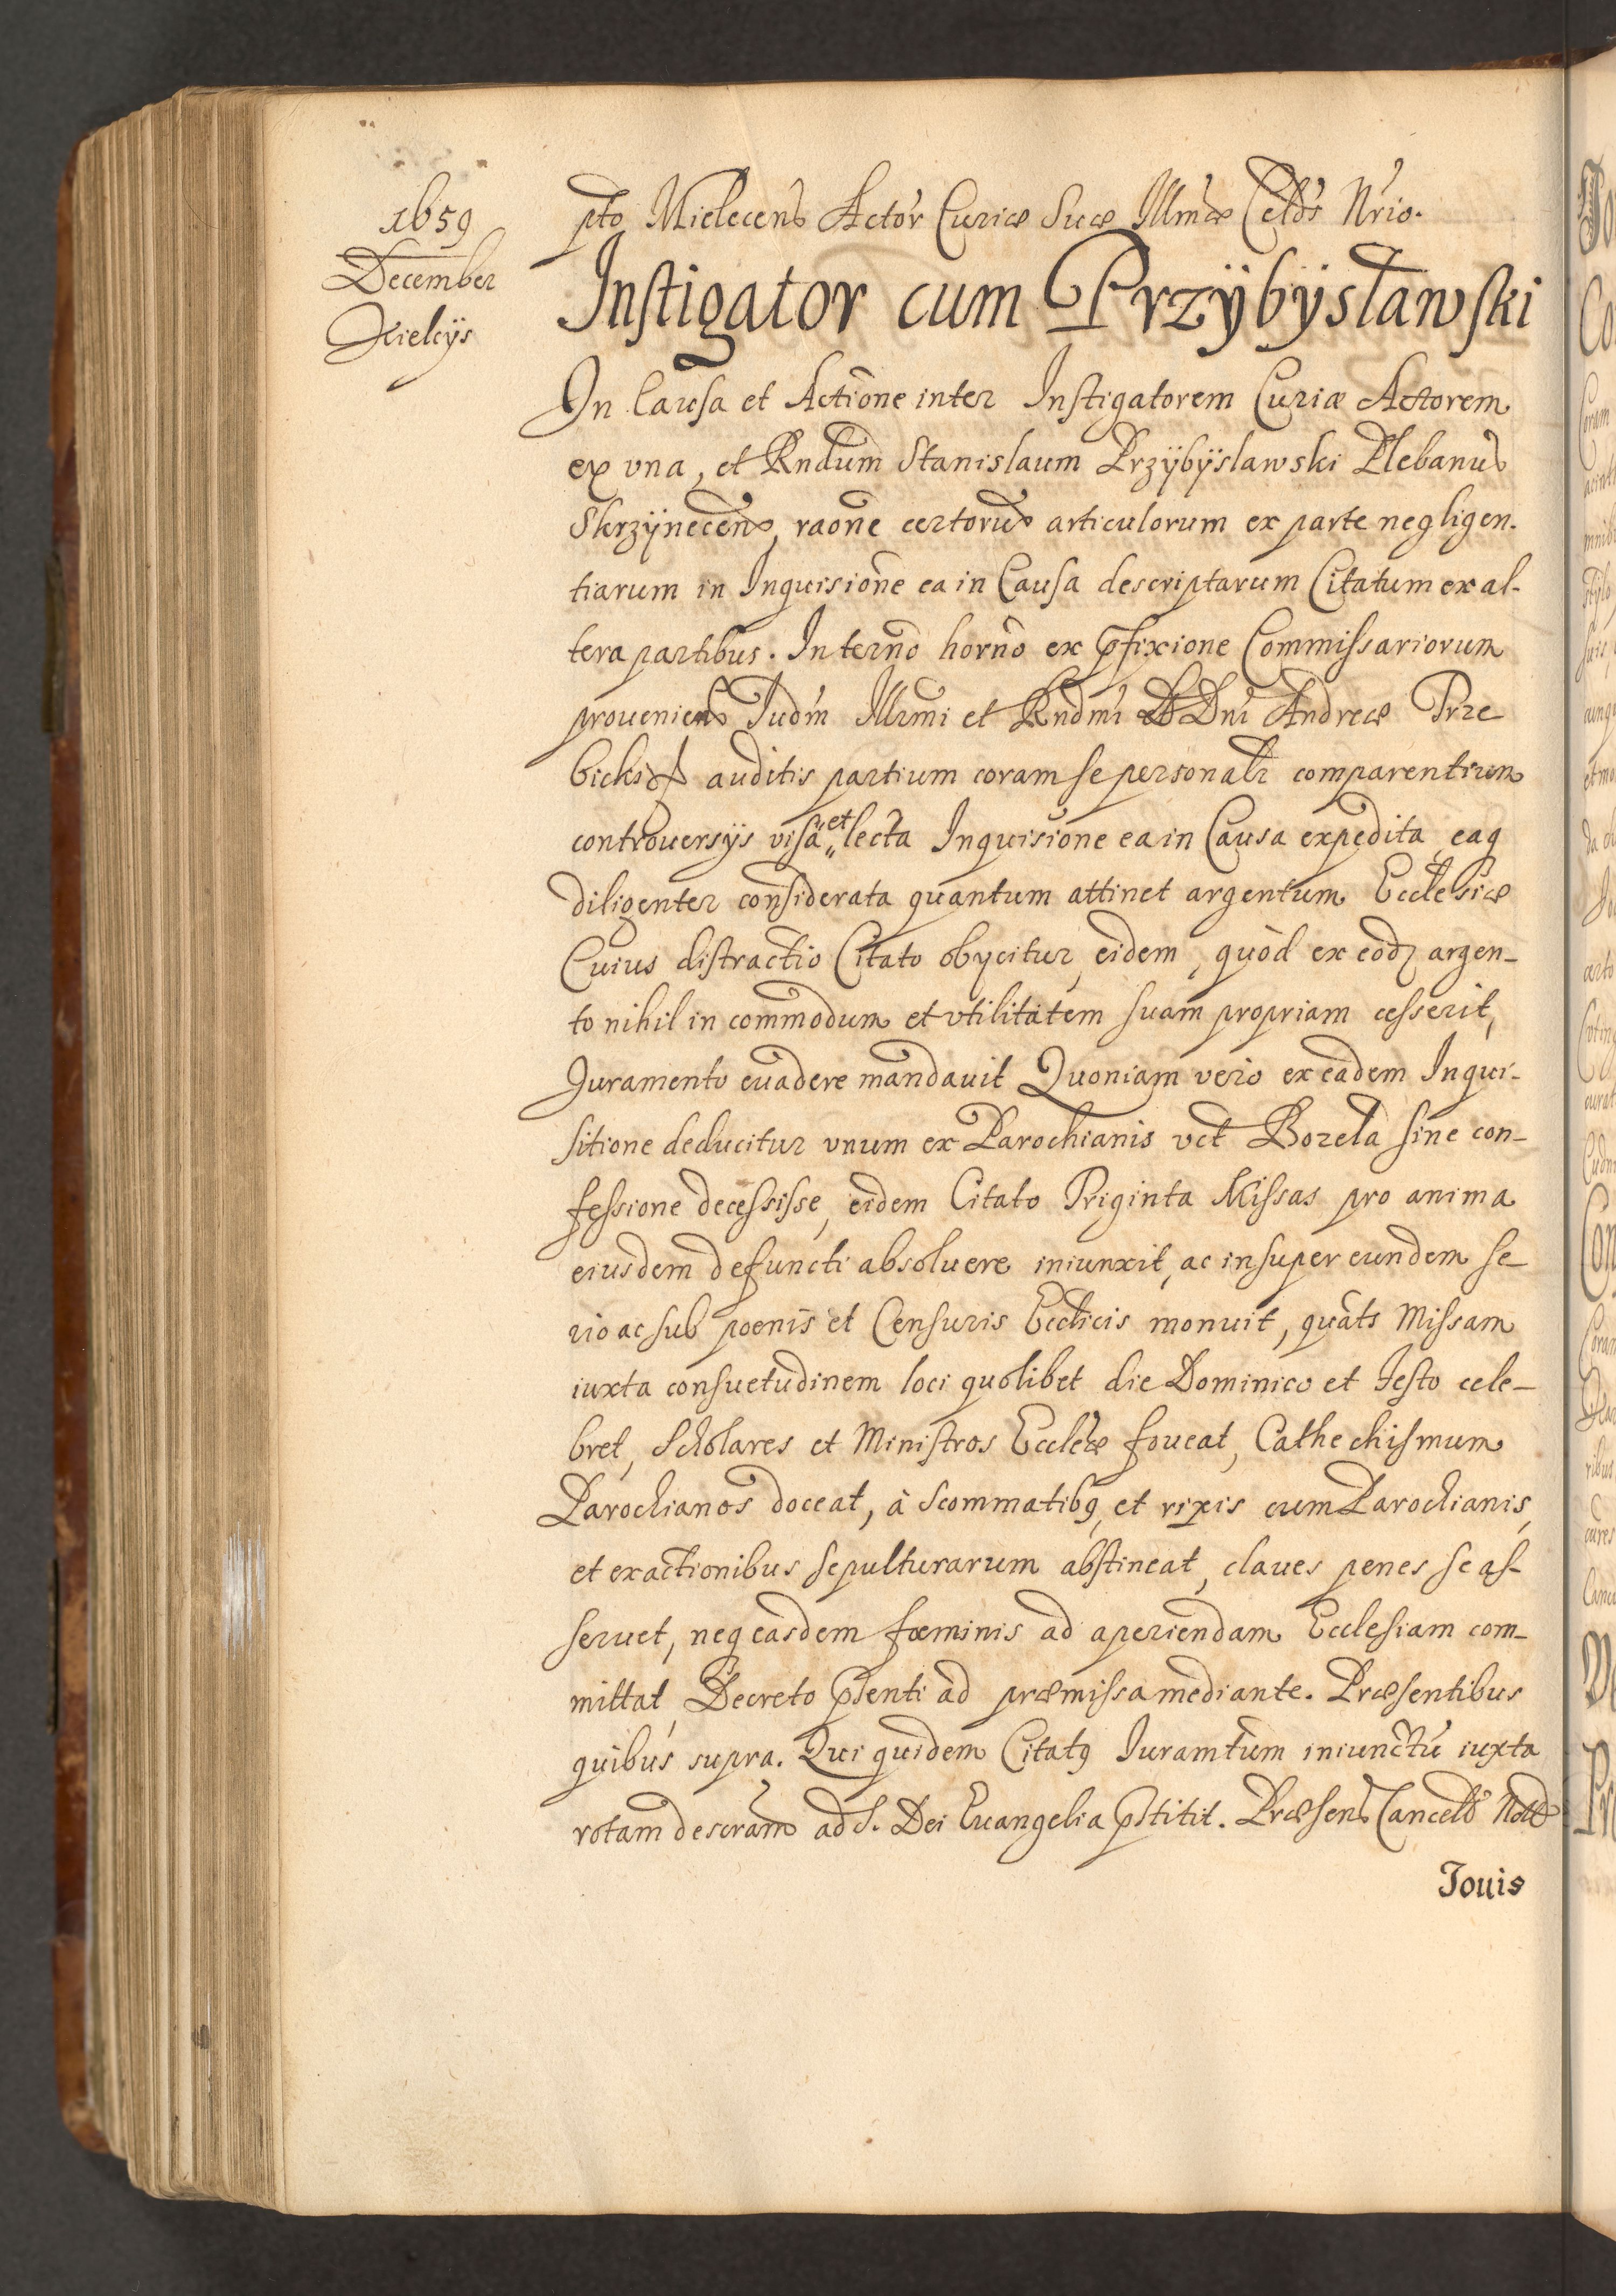 1659
December
Kielcÿs
pto Mielecens Actor Curiæ Suæ Illmæ Celds Nrio.
Instigator cum Przÿbÿsławski
In Causa et Actione inter Instigatorem Curiæ Actorem
ex vna, et Rndum Stanislaum Przÿbÿslawski Plebanus
Skrzÿnecens, raone certorum articulorum ex parte negligen-
tiarum in Inquisione ea in Causa descriptarum Citatum ex al-
tera partibus. In termo horno ex pfixione Commissariorum
proueniens Iudm Illmi et Rndmi Dni Andreæ Trze
bicki auditis partium coram se personalr comparentium
controuersÿs visa et lecta Inquisione ea in Causa expedita eaq
diligenter considerata quantum attinet argentum Ecclesiæ
Cuius distractio Citato obycitur, eidem, quòd ex eodz argen-
to nihil in commodum et vtilitatem suam propriam cesserit,
Iuramento euadere mandauit Quoniam vero ex eadem Inqui-
sitione deducitur vnum ex Parochianis vct Bozela sine con-
fessione decessisse, eidem Citato Triginta Missas pro anima
eiusdem defuncti absoluere iniunxit, ac insuper eundem se-
rio ac sub poenis et Censuris Ecclicis monuit, quats Missam
iuxta consuetudinem loci quolibet die Dominico et Festo cele-
bret, Scholares et Ministros Eccleæ foueat, Cathechismum
Parochianos doceat, à scommatibq, et rixis cum Parochianis,
et exactionibus sepulturarum abstineat, claues penes se as-
seruet, neq easdem fœminis ad aperiendam Ecclesiam com-
mittat, Decreto psenti ad præmissa mediante. Præsentibus
quibus supra. Qui quidem Citatq Iuramtum iniunctu iuxta
rotam descram ad S. Dei Euangelia pstitit. Præsens Cancells Notto
Iouis